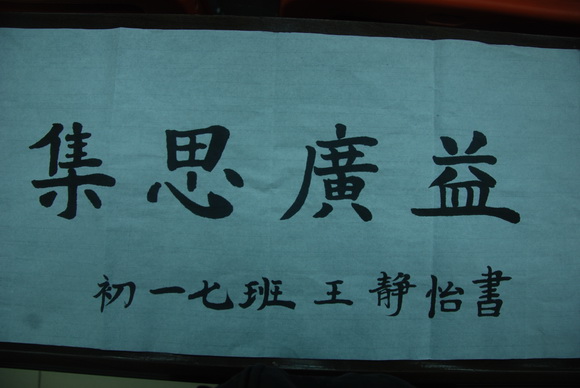 集思廣益
初一七班 王靜怡書